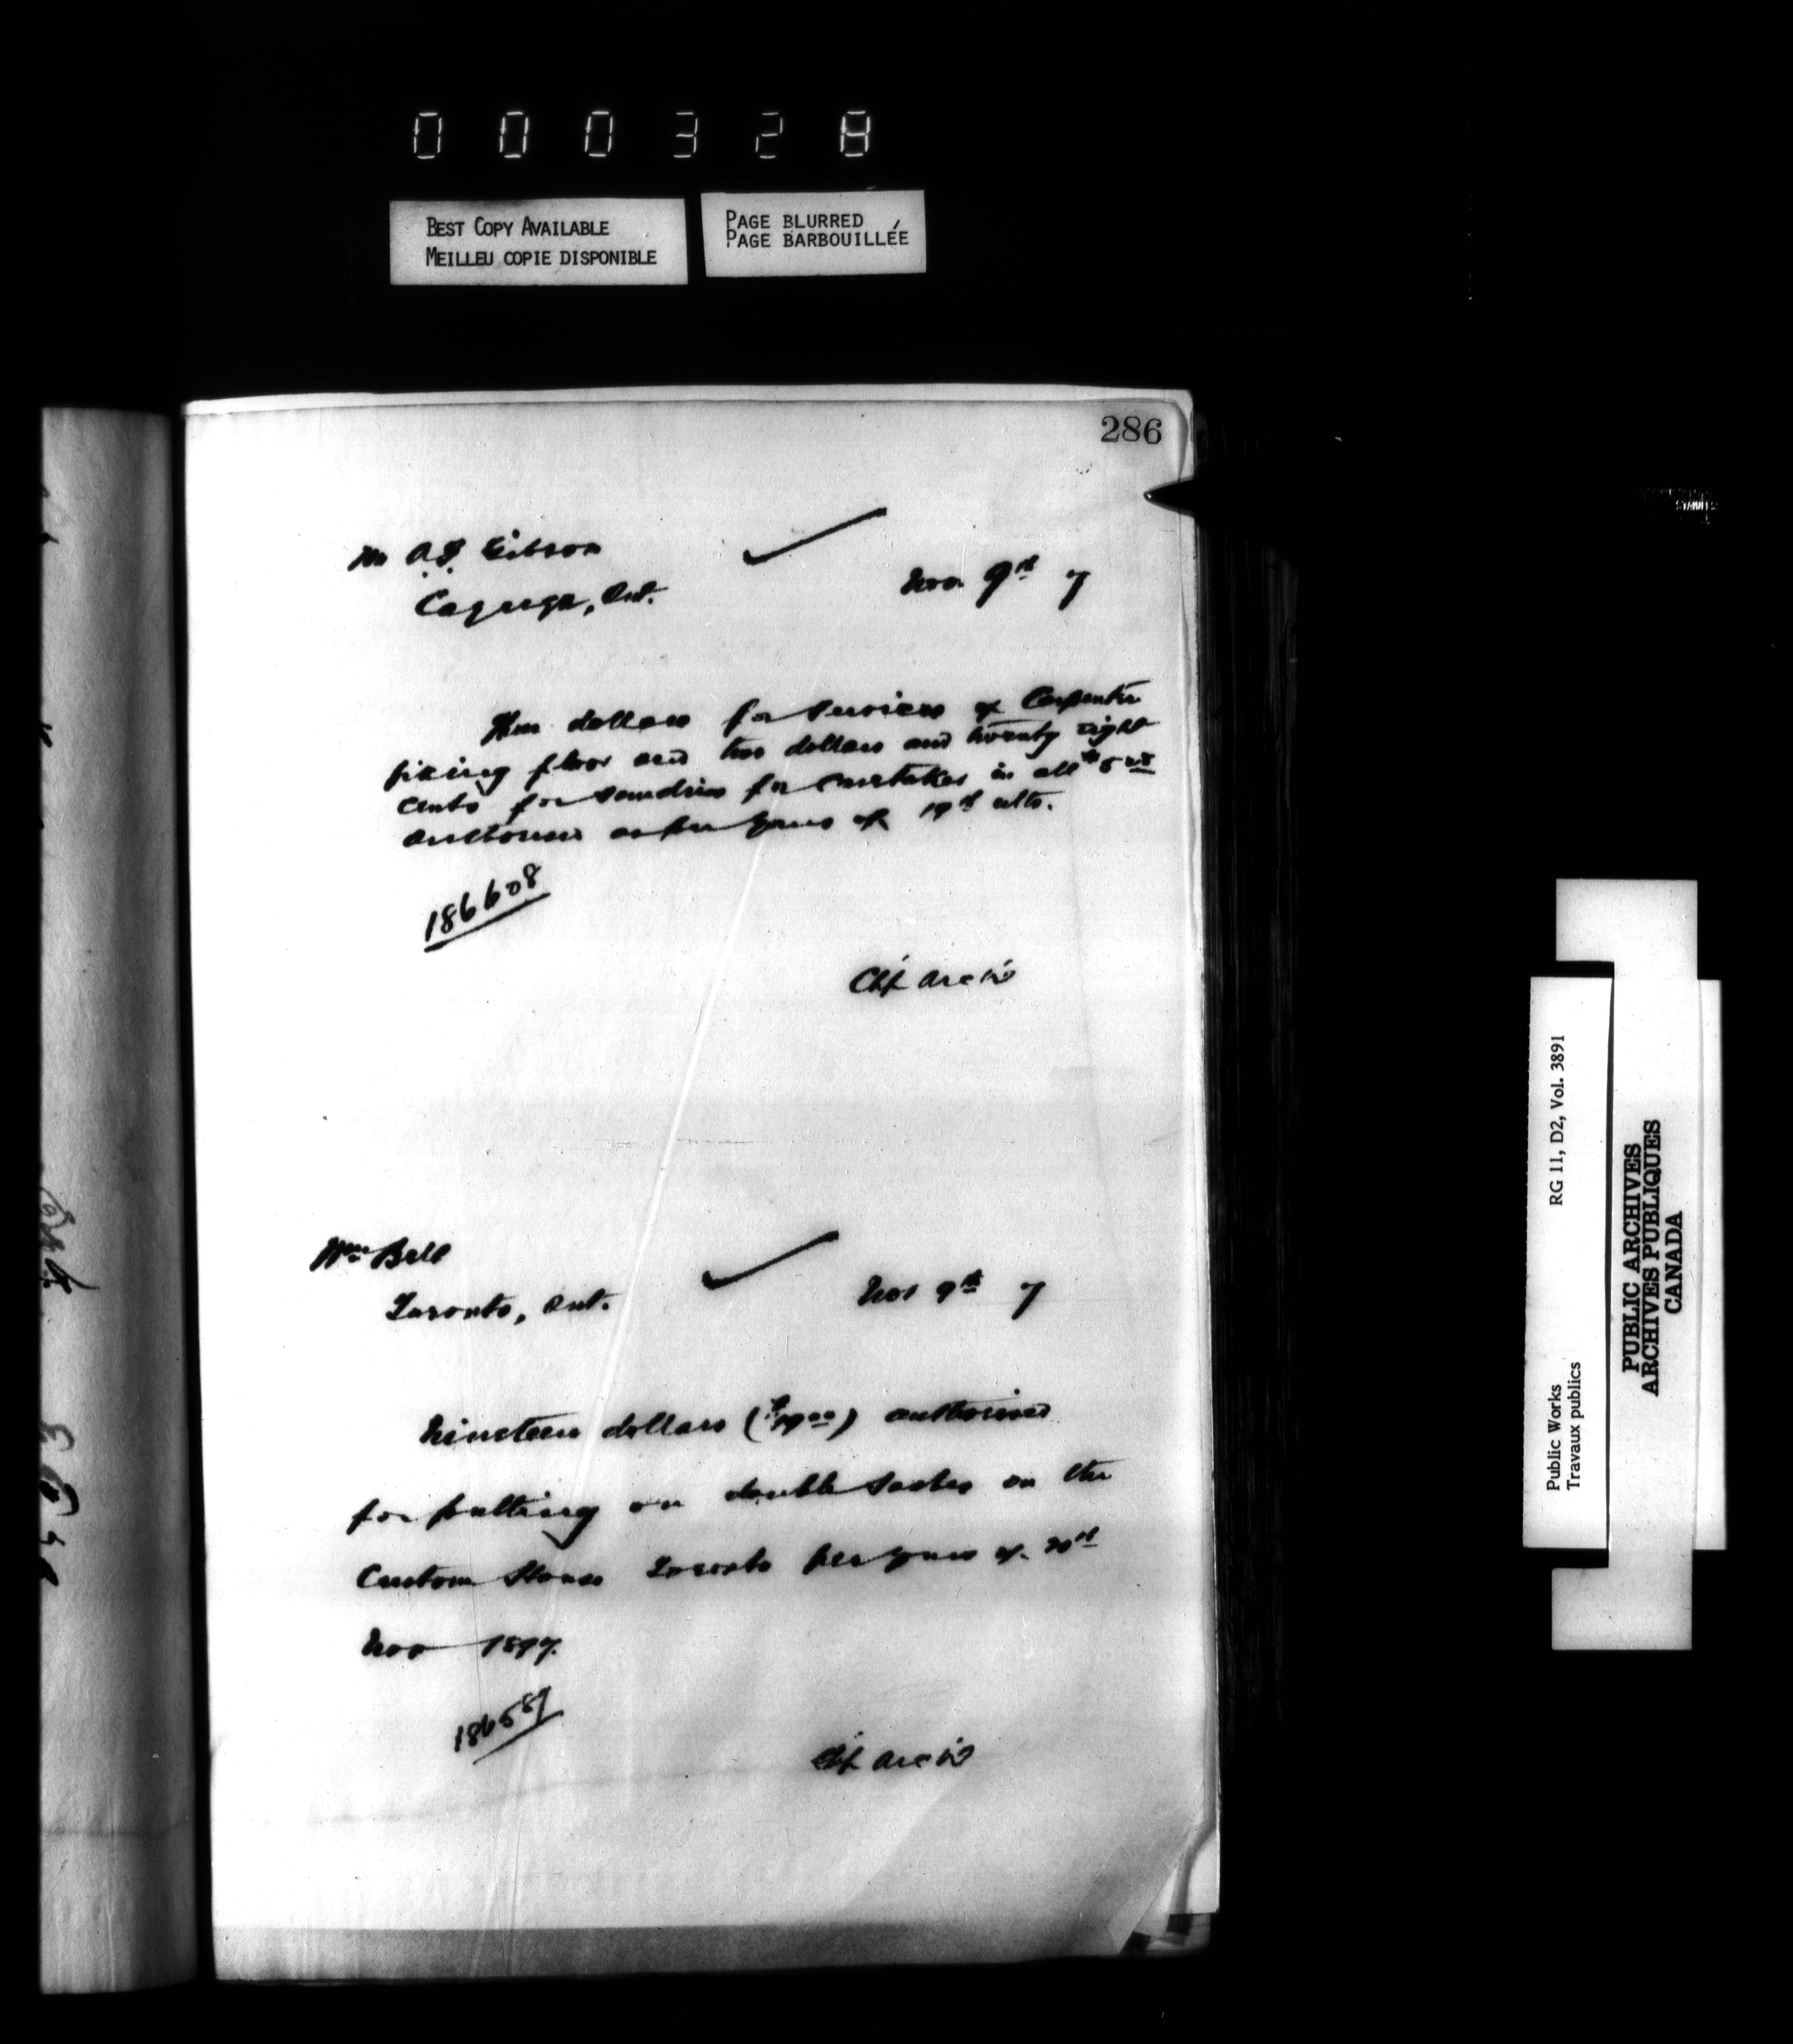 000328
BEST COPY AVAILABLE
MEILLEU COPIE DISPONIBLE
PAGE BLURRED
PAGE BARBOUILLÉE
286
Mr A. Gibson
Cayuga, Ont.
Nov. 9th 7
dollars for services of Carpenter
fixing floor and two dollars and twenty eight
cents for sundries for caretaker in all $5 28
authorised as per yours of 19th ulto.
186608
Chf Arch
Wm Bell
Toronto, Ont.
Nov 9th 7
Nineteen dollars ($19 00) authorised
for putting on double sashes on the
Custom House Toronto per yours of
Nov 1897.
186589
Chf Arch
Public Works
Travaux publics
RG 11, D2, Vol. 3891
PUBLIC ARCHIVES
ARCHIVES PUBLIQUES
CANADA